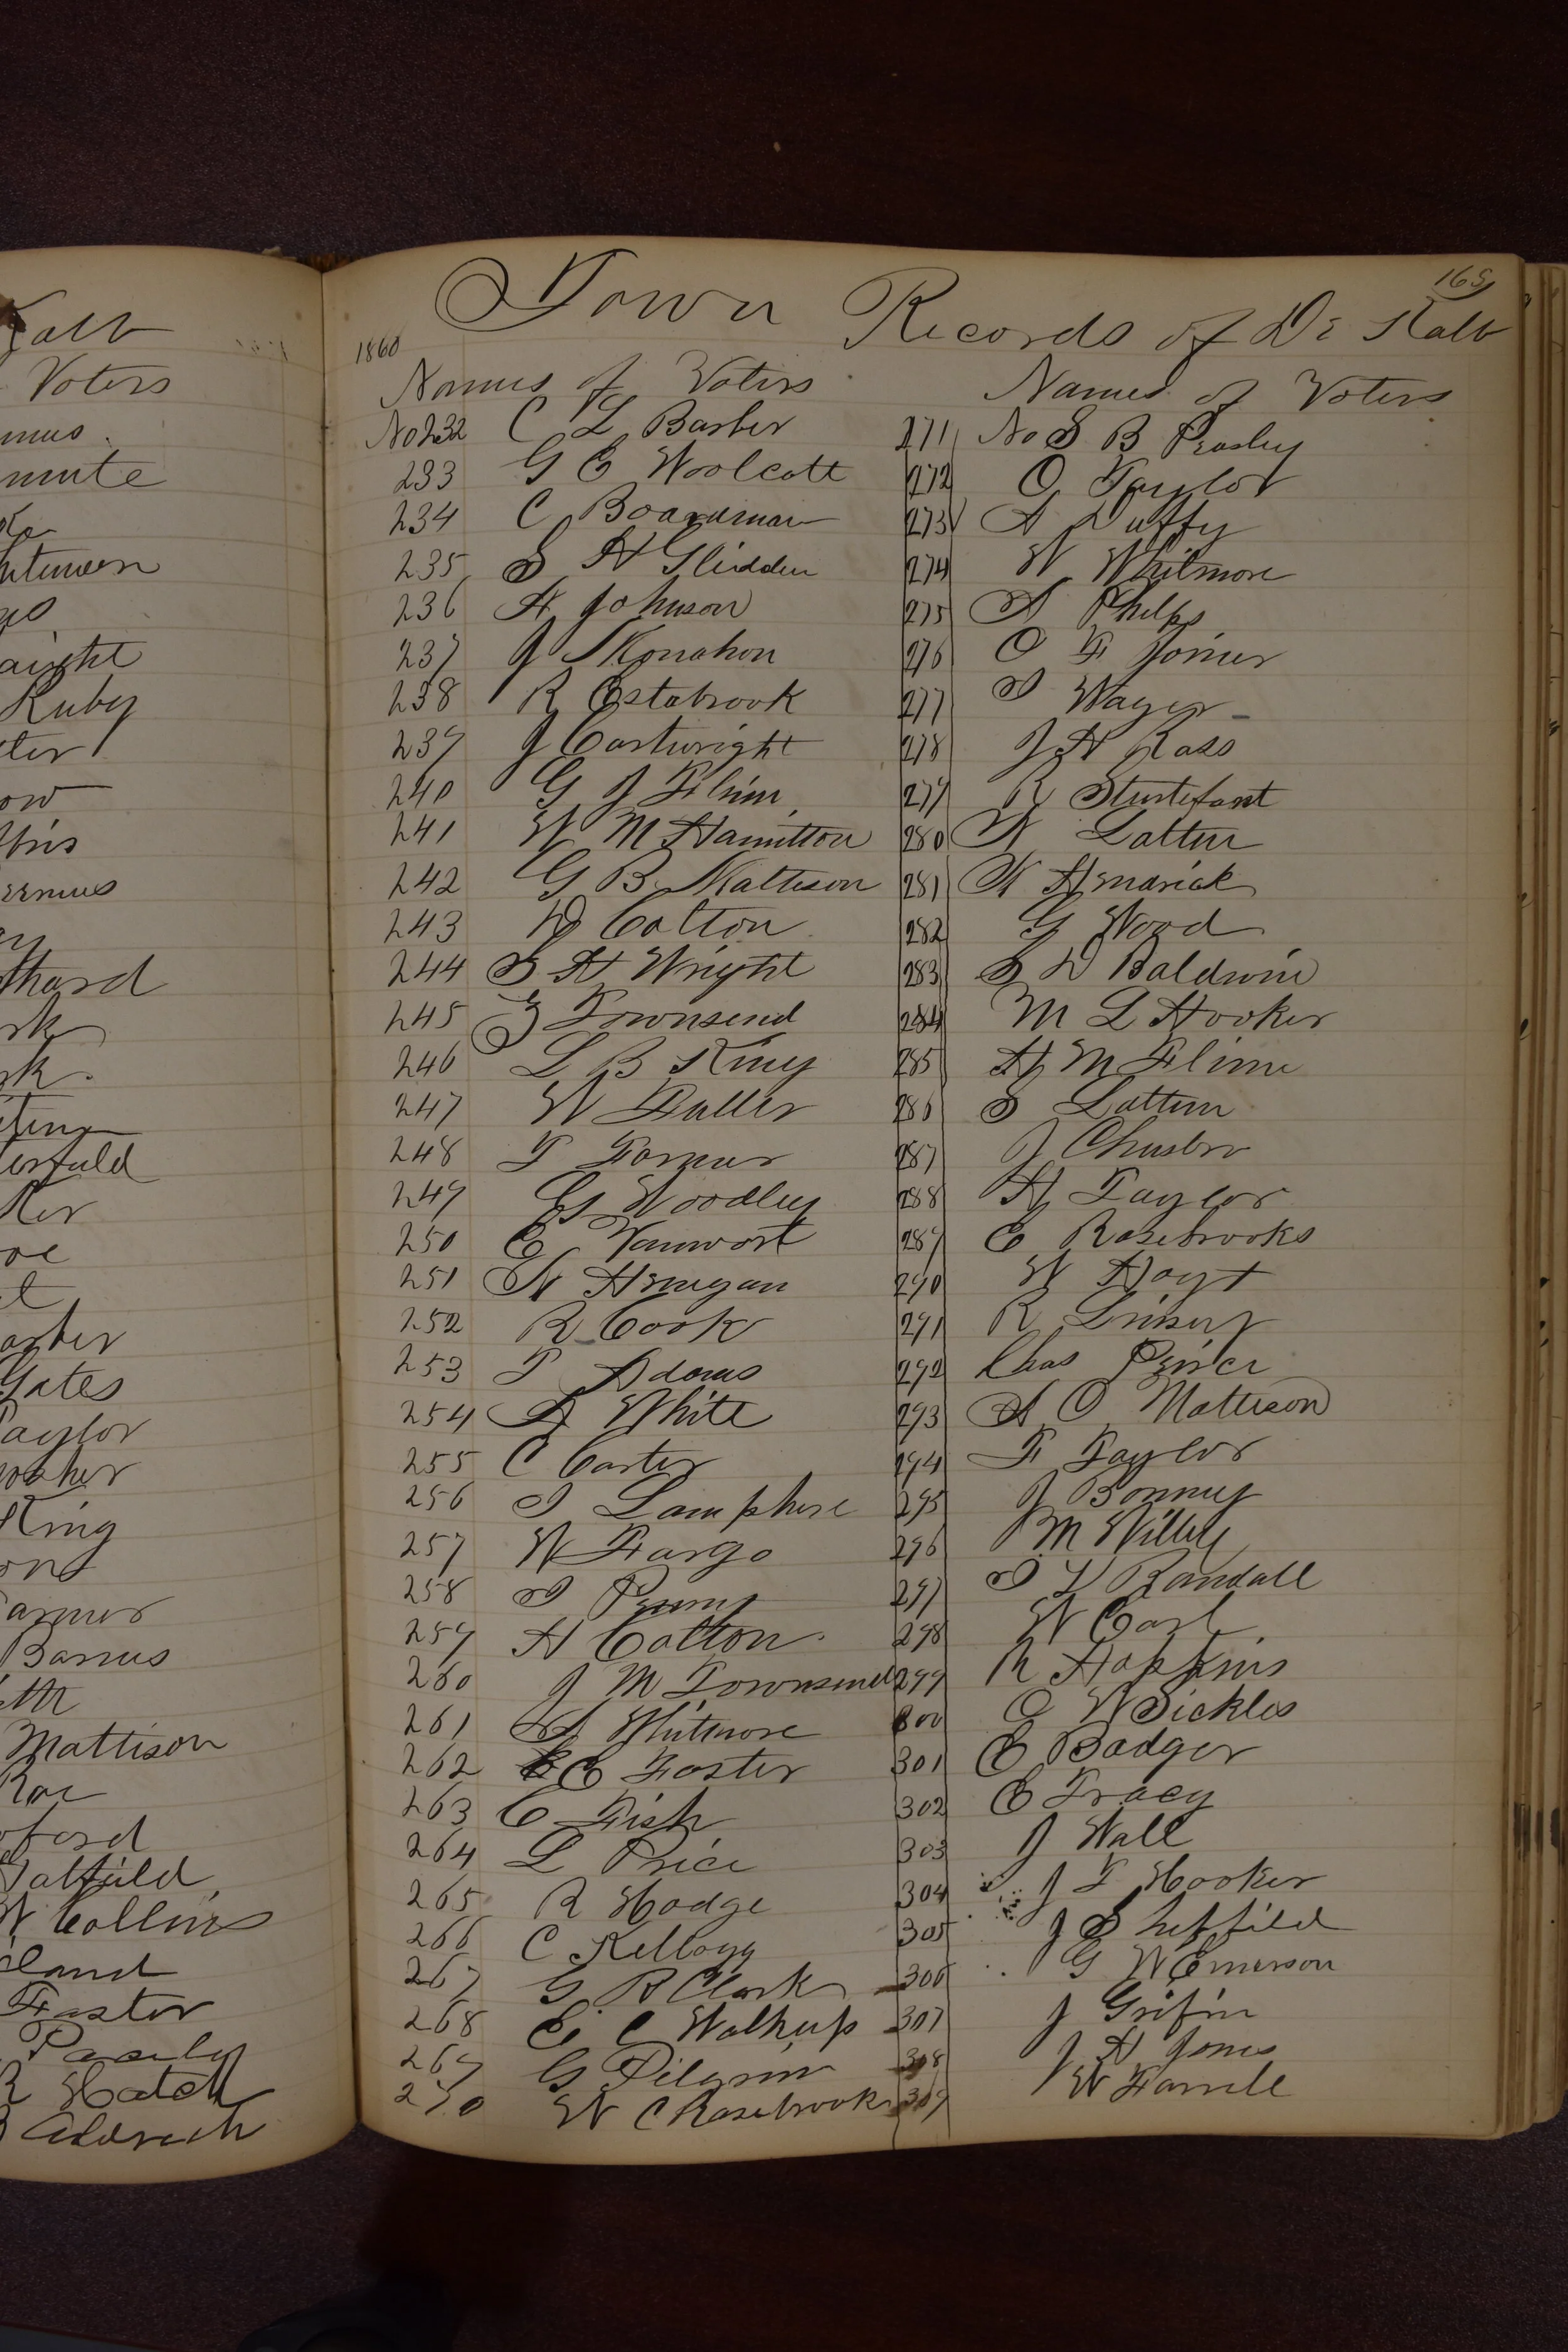 Kalb
Voters
mus.
mute
hteneen
aight
Ruby
ter
ow
thard
rk
rk.
ting
ker
arber
Gates
Taylor
King
armer
Barrus
Mattison
Roe
ford
Hatfield
W Collins
land
Foster
R Hatch
165
Town Records of De Kalb
1860
Names of Voters
No 232 C L Barber
233 G E Woolcott
234 C Boardman
235 S H Glidden
236 H Johnson
237 J Monahon
238 R Estabrook
239 J Cartwright
240 G J Flinn
241 W M Hamilton
242 G B Mattison
243 D Colton
244 S H Wright
245 Townsend
246 L B King
247 W Fuller
248 T Farmer
249 G Woodley
250 E Vanwort
251 N
252 R Cook
253 T Adams
254 A White
255 C Carter
256 I Lamphere
257 W Fargo
258 I
259 H Colton
260 J M Townsend
261 S Whitmore
262 E Foster
263 C Fish
264 L Price
265 R Hodge
266 C Kellogg
267 G R Clark
268 E C Walkup
269 G Pilgrim
270 W C Rosebrook
Names of Voters
271 No S B Peasley
272 O Taylor
273 A Duffy
274 W Whitmore
275 A Phelps
276 O F Joiner
277 I Wager
278 J H Ross
279 R Sturtefant
280 N Lattin
281 K
282 G Wood
283 S D Baldwin
284 M L Hooker
285 H M Flinn
286 S Lattin
287 J
288 H Taylor
289 E Rosebrooks
290 W Hoyt
291 R Linsey
292 Chas Peirce
293 A O Mattison
294 F Taylor
295 J Bonney
296 M Willey
297 I D Randall
298 W Earl
299 N Hopkins
300 O W Sickles
301 E Badger
302 E Tracy
303 J Wall
304 J T Hooker
305 J Sheffield
306 G W Emerson
307 J Grifin
308 J H Jones
309 W Farrell